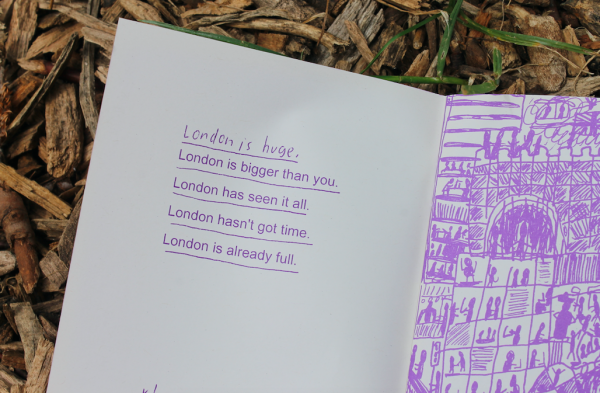 London is huge.
London is bigger than you.
London has seen it all.
London hasn't got time.
London is already full.